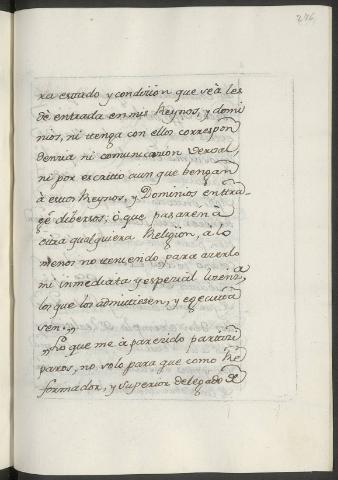 276,
ra estado y condizion que sea les
de entrada en mis Reynos, y domi
nios, ni tenga con ellos correspon
denzia ni comunicazion verval,
ni por escritto aun que bengan
à estos Reynos, y Dominios en ttra
ge diberso; ò que pasaren à
otra qualquiera Religion, a lo
menos no teniendo para averlo
mi inmediata y espezial lizenzia
los, que los admittiesen, y egecuta
sen.,,
,,Lo que me à parezido partizi
paros, no solo para que como Re
formador, y superior delegado de